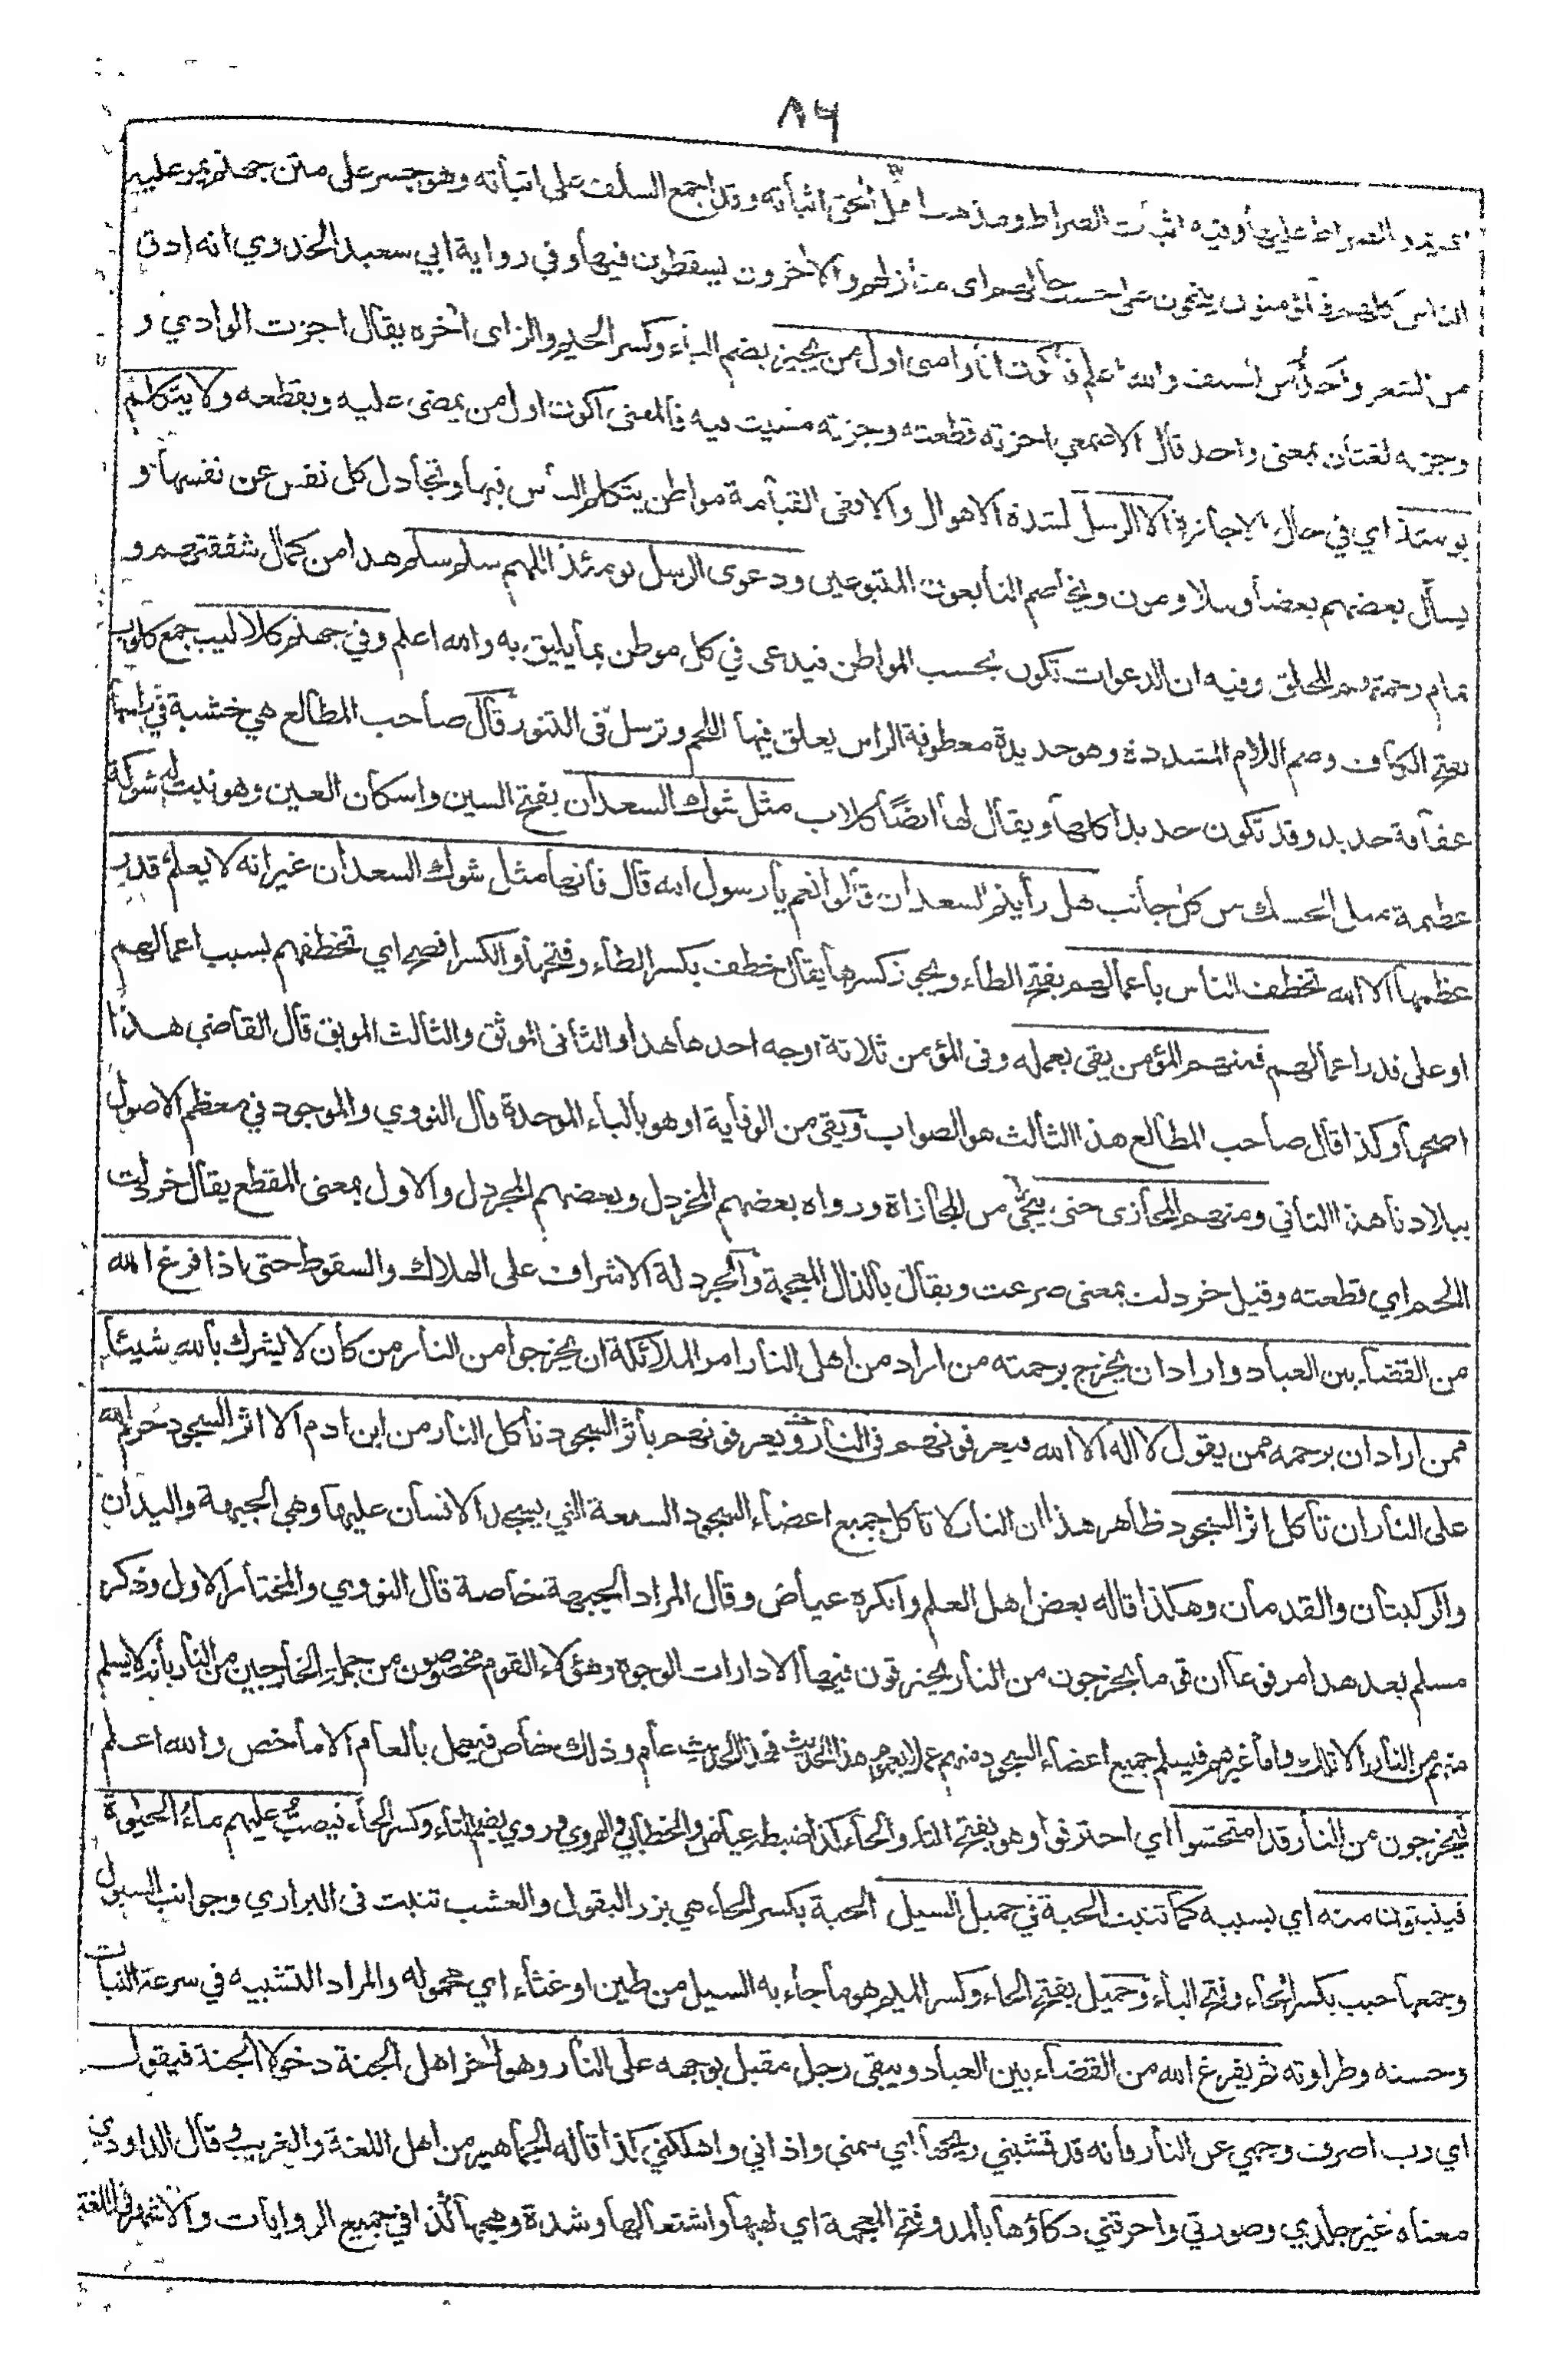 ٨٦
الصراط عليها وفيه اثبات الصراط ومذهب اهل الحق اثباته وقد اجمع السلف على اثباته وهو جسر على متن جهنم يمر عليه
الناس كلهم فالمؤمنون ينجون على حسب حالهم اى منازلهم والآخرون يسقطون فيها وفي رواية ابي سعيد الخدري انه ادق
من الشعر واحد من السيف والله اعلم فاكون انا وامتى اول من يجيز بضم الياء وكسر الجيم والزاى اخره يقال اجزت الوادي و
وجزته لغتان بمعنى واحد قال الاصمعي اجزته قطعته وجزته مشيت فيه فالمعنى اكون اول من يمضى عليه ويقطعه ولا يتكلم
يومئذ اي في حال الاجازة الا الرسل لشدة الاهوال والا ففى القيامة مواطن يتكلم الناس فيها وتجادل كل نفس عن نفسها و
يسأل بعضهم بعضا ويتلاومون ويخاصم التابعون المتبوعين ودعوى الرسل يومئذ اللهم سلم سلم هذا من كمال شفقتهم و
تمام رحمتهم للخلق وفيه ان الدعوات تكون بحسب المواطن فيدعى في كل موطن بما يليق به والله اعلم وفي جهنم كلاليب جمع كلوب
بفتح الكاف وضم اللام المشددة وهو حديدة معطوفة الراس يعلق فيها اللحم وترسل فى التنور قال صاحب المطالع هي خشبة في راسها
عقافة حديد وقد تكون حديدا كلها ويقال لها ايضًا كلاب مثل شوك السعدان بفتح السين واسكان العين وهو نبت له شوكة
عظيمة مثل الحسك من كل جانب هل رأيتم السعدان قالوا نعم يا رسول الله قال فانها مثل شوك السعدان غير انه لا يعلم قدر
عظمها الا الله تخطف الناس باعمالهم بفتح الطاء ويجوز كسرها يقال خطف بكسر الطاء وفتحها والكسر افصح اي تخطفهم بسبب اعمالهم
او على قدر اعمالهم فمنهم المؤمن يقى بعمله وفى المؤمن ثلاثة اوجه احدها هذا والثانى الموثق والثالث الموبق قال القاضي هذا
اصحها وكذا قال صاحب المطالع هذا الثالث هو الصواب ويقى من الوقاية او هو بالباء الموحدة قال النووي والموجود في معظم الاصول
ببلادنا هذا الثاني ومنهم المجازى حتى ينجى من المجازاة ورواه بعضهم المخردل وبعضهم المجردل والاول بمعنى المقطع يقال خردلت
اللحم اي قطعته وقيل خردلت بمعنى صرعت ويقال بالذال المعجمة والجردلة الاشراف على الهلاك والسقوط حتى اذا فرغ الله
من القضاء بين العباد واراد ان يخرج برحمته من اراد من اهل النار امر الملائكة ان يخرجوا من النار من كان لا يشرك بالله شيئا
ممن اراد ان يرحمه ممن يقول لا اله الا الله فيعرفونهم فى النار ويعرفونهم باثر السجود تأكل النار من ابن ادم الا اثر السجود حرم الله
على النار ان تأكل اثر السجود ظاهر هذا ان النار لا تأكل جميع اعضاء السجود السبعة التي يسجد الانسان عليها وهي الجبهة واليدان
والركبتان والقدمان وهكذا قاله بعض اهل العلم وانكره عياض وقال المراد الجبهة خاصة قال النووي والمختار الاول وذكر
مسلم بعد هذا مرفوعا ان قوما يخرجون من النار يحترقون فيها الا دارات الوجوه وهؤلاء القوم مخصوصون من جملة الخارجين من النار بأنه لا يسلم
منهم من النار الا تلك واما غيرهم فيسلم جميع اعضاء السجود منهم عملا بعموم هذا الحديث فهذا الحديث عام وذلك خاص فيعمل بالعام الا ما خص والله اعلم
فيخرجون من النار قد امتحشوا اي احترقوا وهو بفتح التاء والحاء كذا ضبطه عياض والخطابي والهروي وروي بضم التاء وكسر الحاء فيصبُّ عليهم ماءُ الحيٰوة
فينبتون منه اي بسببه كما تنبت الحبة في حميل السيل الحبة بكسر الحاء هي بزر البقول والعشب تنبت فى البراري وجوانب السيول
وجمعها حبب بكسر الحاء وفتح الباء وحميل بفتح الحاء وكسر الميم هو ما جاء به السيل من طين او غثاء اي محموله والمراد التشبيه في سرعة النبات
وحسنه وطراوته ثم يفرغ الله من القضاء بين العباد ويبقى رجل مقبل بوجهه على النار وهو اخر اهل الجنة دخولا الجنة فيقول
اي رب اصرف وجهي عن النار فانه قد قشبني ريحها اي سمني واذاني واهلكني كذا قاله الجماهير من اهل اللغة والغريب وقال الداودي
معناه غير جلدي وصورتي واحرقني ذكاؤها بالمد وفتح المعجمة اي لهبها واشتعالها وشدة وهجها كذا في جميع الروايات والاشهر في اللغة